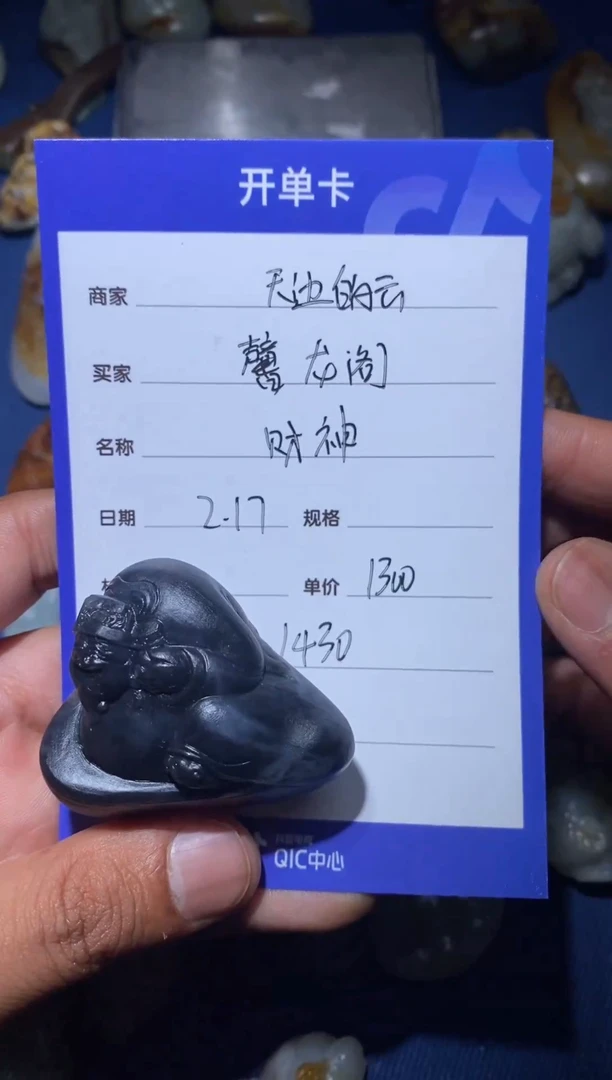 开单卡
商家 天边的云
买家 馨龙阁
名称 财神
日期 2.17 规格
单价 1300
1430
QIC中心